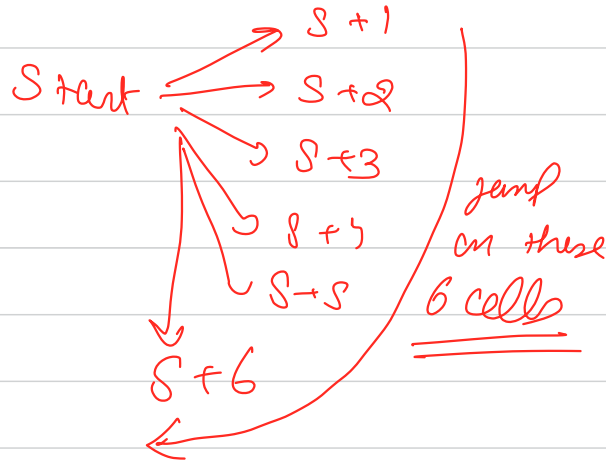 S + 1
Start
S + 2
S + 3
S + 4
S + 5
S + 6
jump
on these
6 cells